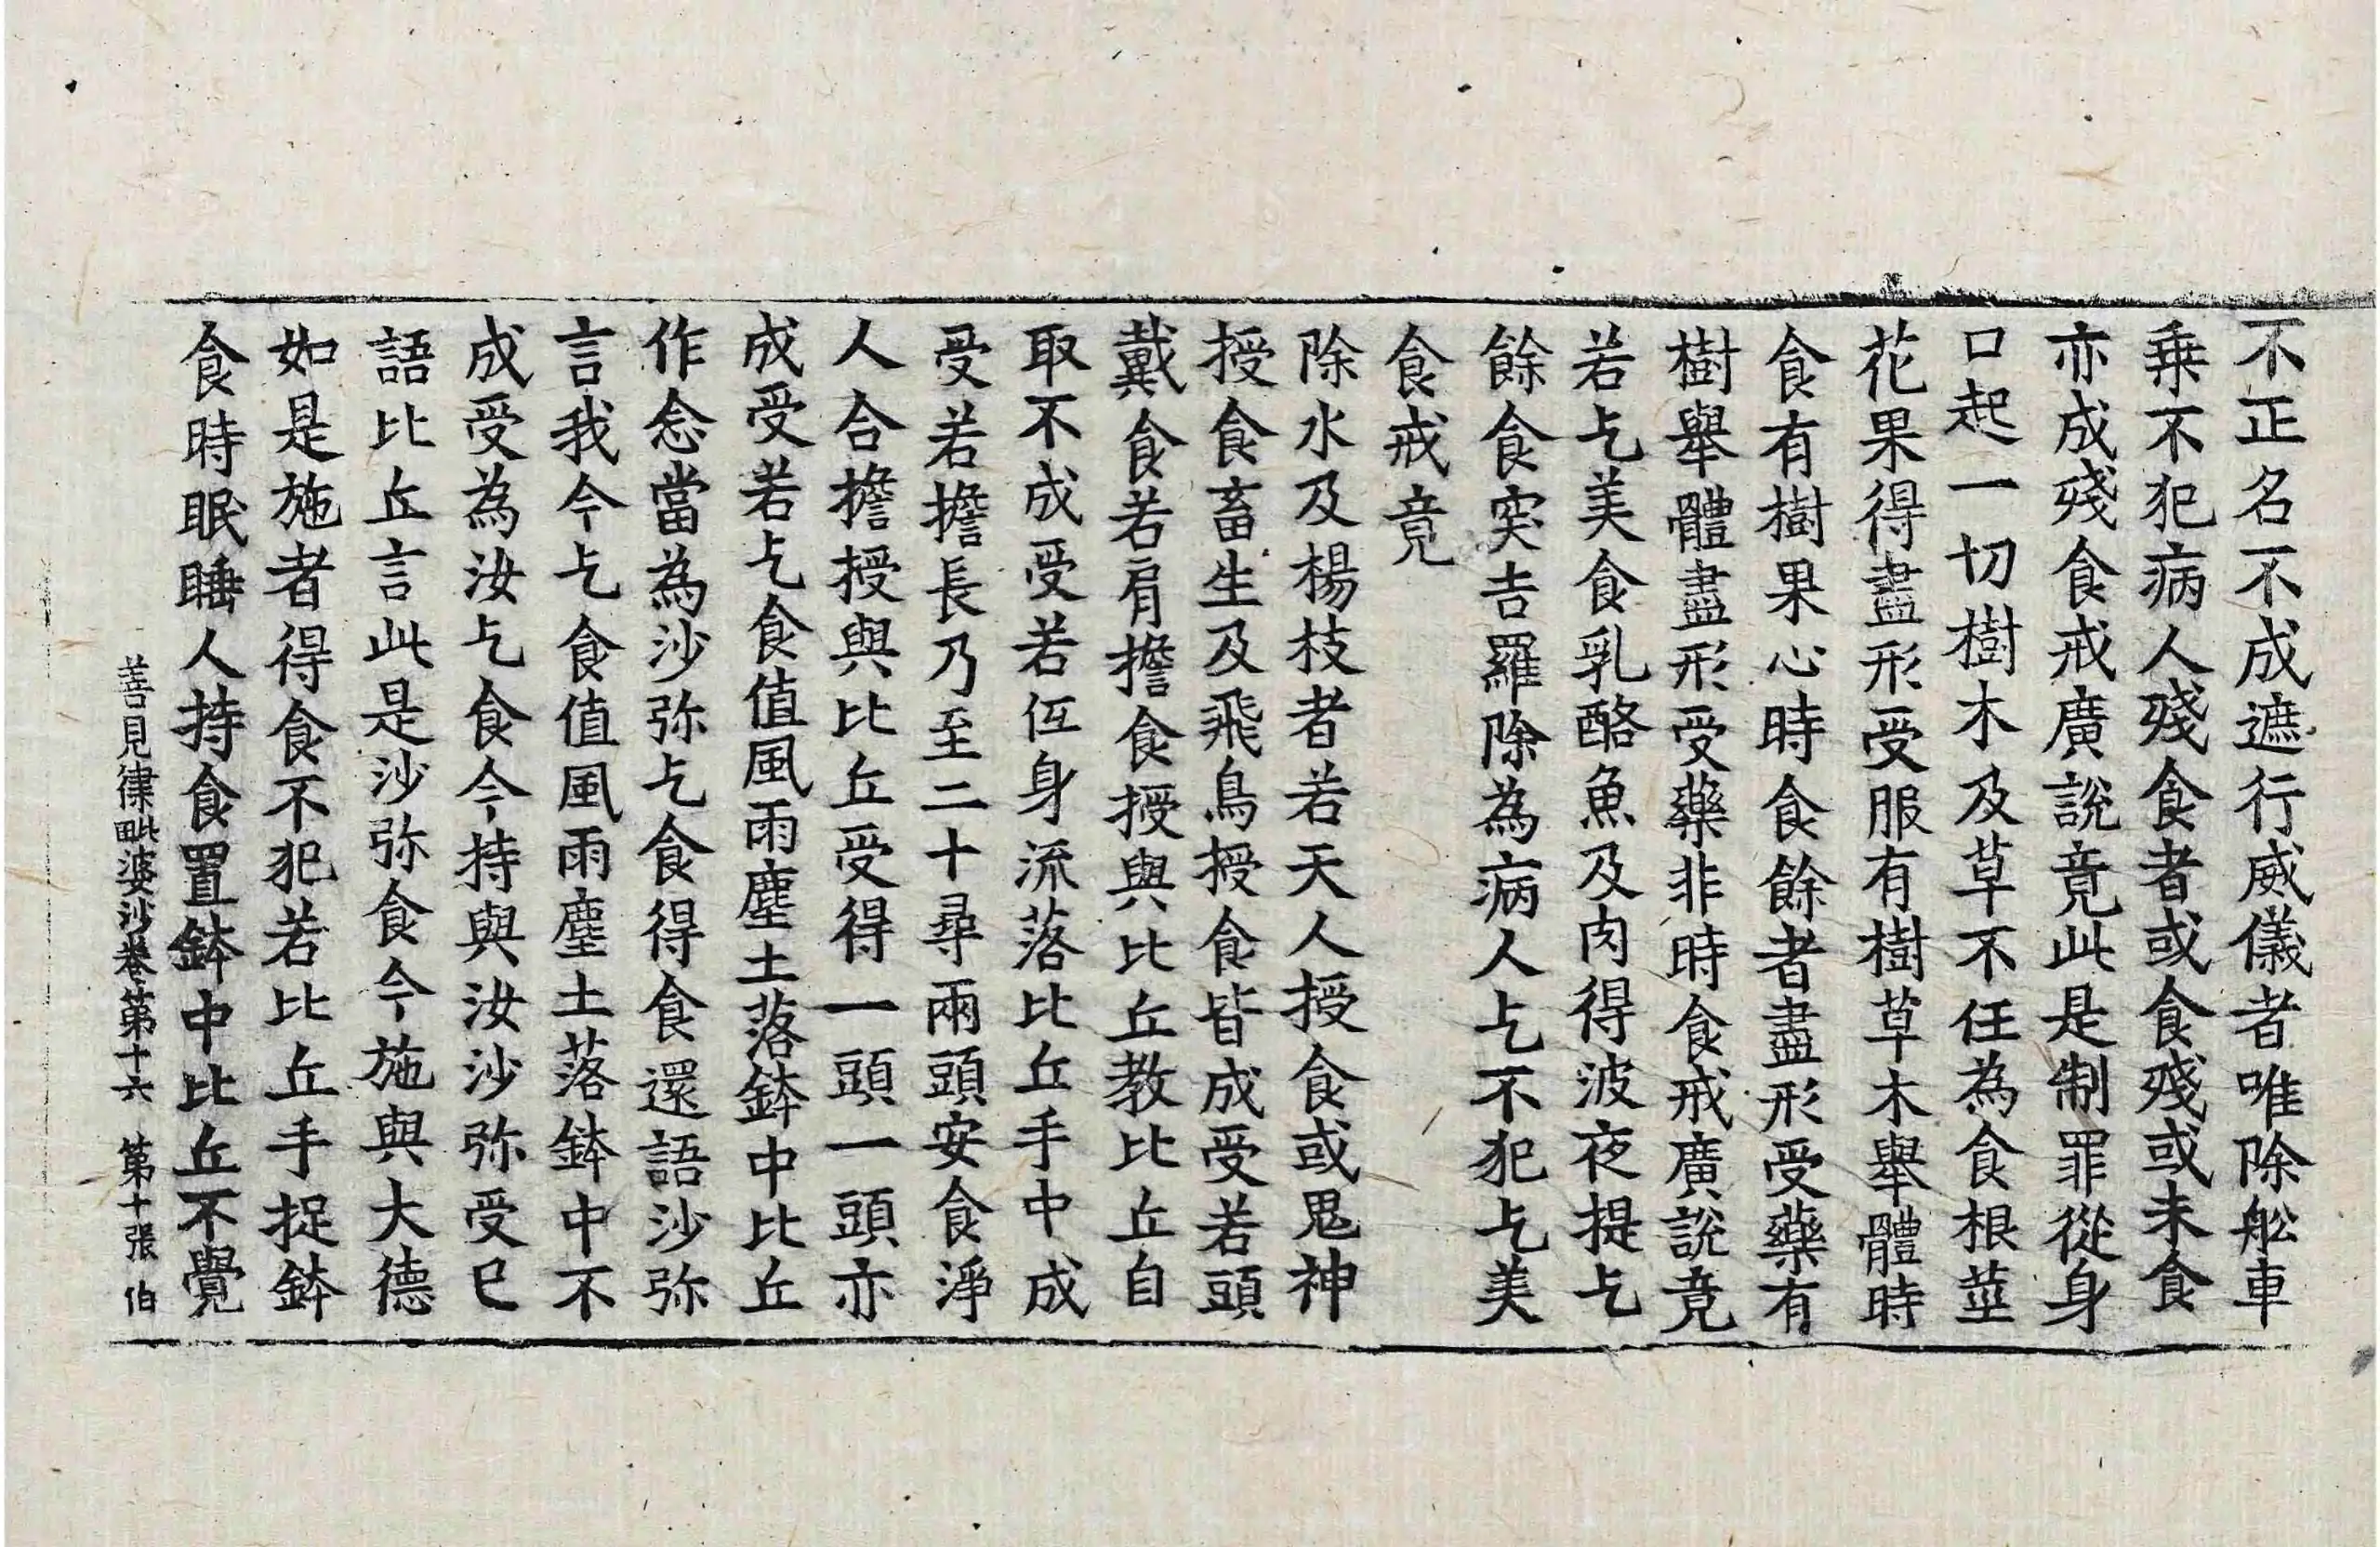 不正名不成遮行威儀者唯除舩車
乗不犯病人殘食者或食殘或未食
亦成殘食戒廣說竟此是制罪從身
口起一切樹木及草不任為食根莖
花果得盡形受服有樹草木舉體時
食有樹果心時食餘者盡形受藥有
樹舉體盡形受藥非時食戒廣說竟
若乞美食乳酪魚及肉得波夜提乞
餘食突吉羅除為病人乞不犯乞美
食戒竟
除水及楊枝者若天人授食或鬼神
授食畜生及飛鳥授食皆成受若頭
戴食若肩擔食授與比丘教比丘自
取不成受若仾身流落比丘手中成
受若擔長乃至二十尋兩頭安食淨
人合擔授與比丘受得一頭一頭亦
成受若乞食值風雨塵土落鉢中比丘
作念當為沙弥乞食得食還語沙弥
言我今乞食值風雨塵土落鉢中不
成受為汝乞食今持與汝沙弥受已
語比丘言此是沙弥食今施與大德
如是施者得食不犯若比丘手捉鉢
食時眠睡人持食置鉢中比丘不覺
善見律毗婆沙卷第十六 第十張 伯